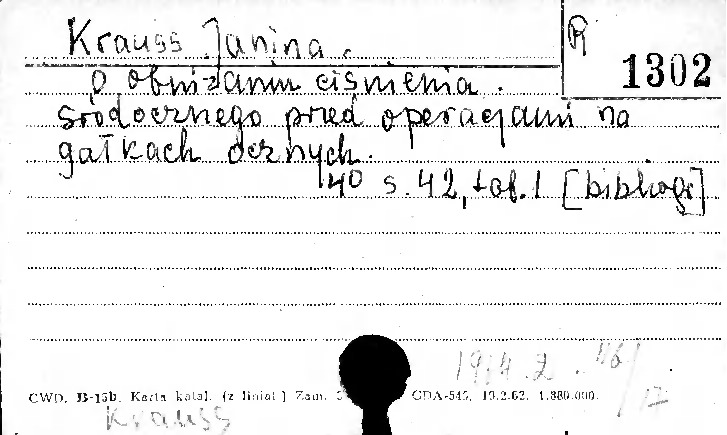 Krauss Janina.
R 1302
O obniżaniu ciśnienia
śródocznego przed operacjami na
gałkach ocznych.
40 s. 42, tab. 1 [bibliogr]
CWD. B-15b. Karta katal. (z liniat.) Zam. GDA-545, 13.2.62. 1.880.000.
Krauss